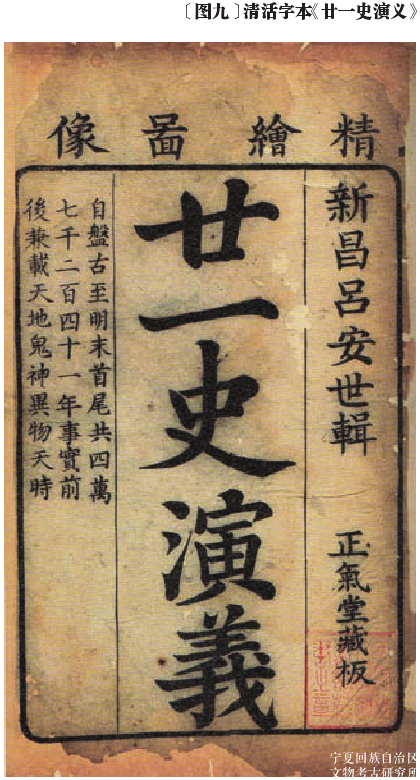 〔图九〕清活字本《廿一史演义》
精繪啚像
新昌呂安世輯
正氣堂藏板
廿一史演義
自盤古至明末首尾共四萬
七千二百四十一年事實前
後兼載天地鬼神異物天時
宁夏回族自治区
文物考古研究所